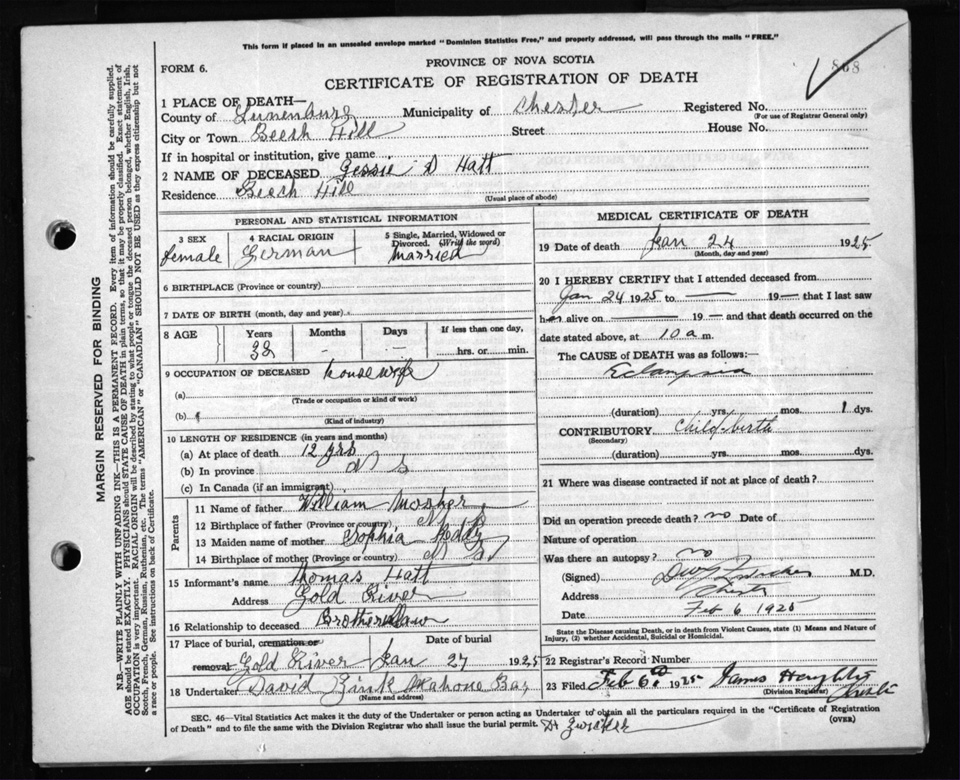 This form if placed in an unsealed envelope marked "Dominion Statistics Free," and properly addressed, will pass through the mails "FREE."
PROVINCE OF NOVA SCOTIA
FORM 6.
CERTIFICATE OF REGISTRATION OF DEATH
868
1 PLACE OF DEATH—
County of Lunenburg Municipality of Chester Registered No.
(For use of Registrar General only)
City or Town Beech Hill Street House No.
If in hospital or institution, give name
2 NAME OF DECEASED Jessie D Hatt
Residence Beech Hill
(Usual place of abode)
PERSONAL AND STATISTICAL INFORMATION
3 SEX female
4 RACIAL ORIGIN German
5 Single, Married, Widowed or Divorced. (Write the word) married
6 BIRTHPLACE (Province or country)
7 DATE OF BIRTH (month, day and year)
8 AGE Years Months Days If less than one day,
38 - - hrs. or min.
9 OCCUPATION OF DECEASED housewife
(a)
(Trade or occupation or kind of work)
(b)
(Kind of industry)
10 LENGTH OF RESIDENCE (in years and months)
(a) At place of death 12 yrs
(b) In province N S
(c) In Canada (if an immigrant)
Parents
11 Name of father William Mosher
12 Birthplace of father (Province or country) N S
13 Maiden name of mother Sophia
14 Birthplace of mother (Province or country) N S
15 Informant's name Thomas Hatt
Address Gold River
16 Relationship to deceased Brother inlaw
17 Place of burial, cremation or removal Gold River Date of burial Jan 27 1925
18 Undertaker David Zink Mahone Bay
(Name and address)
MEDICAL CERTIFICATE OF DEATH
19 Date of death Jan 24 1925
(Month, day and year)
20 I HEREBY CERTIFY that I attended deceased from
Jan 24 1925 to — 19— that I last saw
her alive on — 19— and that death occurred on the
date stated above, at 10 a m.
The CAUSE of DEATH was as follows:—
Eclampsia
(duration) yrs. mos. 1 dys.
CONTRIBUTORY Child-birth
(Secondary)
(duration) yrs. mos. dys.
21 Where was disease contracted if not at place of death?
Did an operation precede death? no Date of
Nature of operation
Was there an autopsy? no
(Signed) Zwicker M.D.
Address Chester
Date Feb 6 1925
State the Disease causing Death, or in death from Violent Causes, state (1) Means and Nature of
Injury, (2) whether Accidental, Suicidal or Homicidal.
22 Registrar's Record Number
23 Filed Feb 6 1925 James
(Division Registrar) Chester
SEC. 46—Vital Statistics Act makes it the duty of the Undertaker or person acting as Undertaker to obtain all the particulars required in the "Certificate of Registration
of Death" and to file the same with the Division Registrar who shall issue the burial permit. Dr Zwicker
(OVER)
MARGIN RESERVED FOR BINDING
N.B.—WRITE PLAINLY WITH UNFADING INK—THIS IS A PERMANENT RECORD. Every item of information should be carefully supplied.
AGE should be stated EXACTLY. PHYSICIANS should STATE CAUSE OF DEATH in plain terms, so that it may be properly classified. Exact statement of
OCCUPATION is very important. RACIAL ORIGIN will be described by stating to what people or tongue the deceased person belonged, whether English, Irish,
Scotch, French, German, Russian, Ruthenian, etc. The terms "AMERICAN" or "CANADIAN" SHOULD NOT BE USED as they express citizenship but not
a race or people. See instructions on back of Certificate.